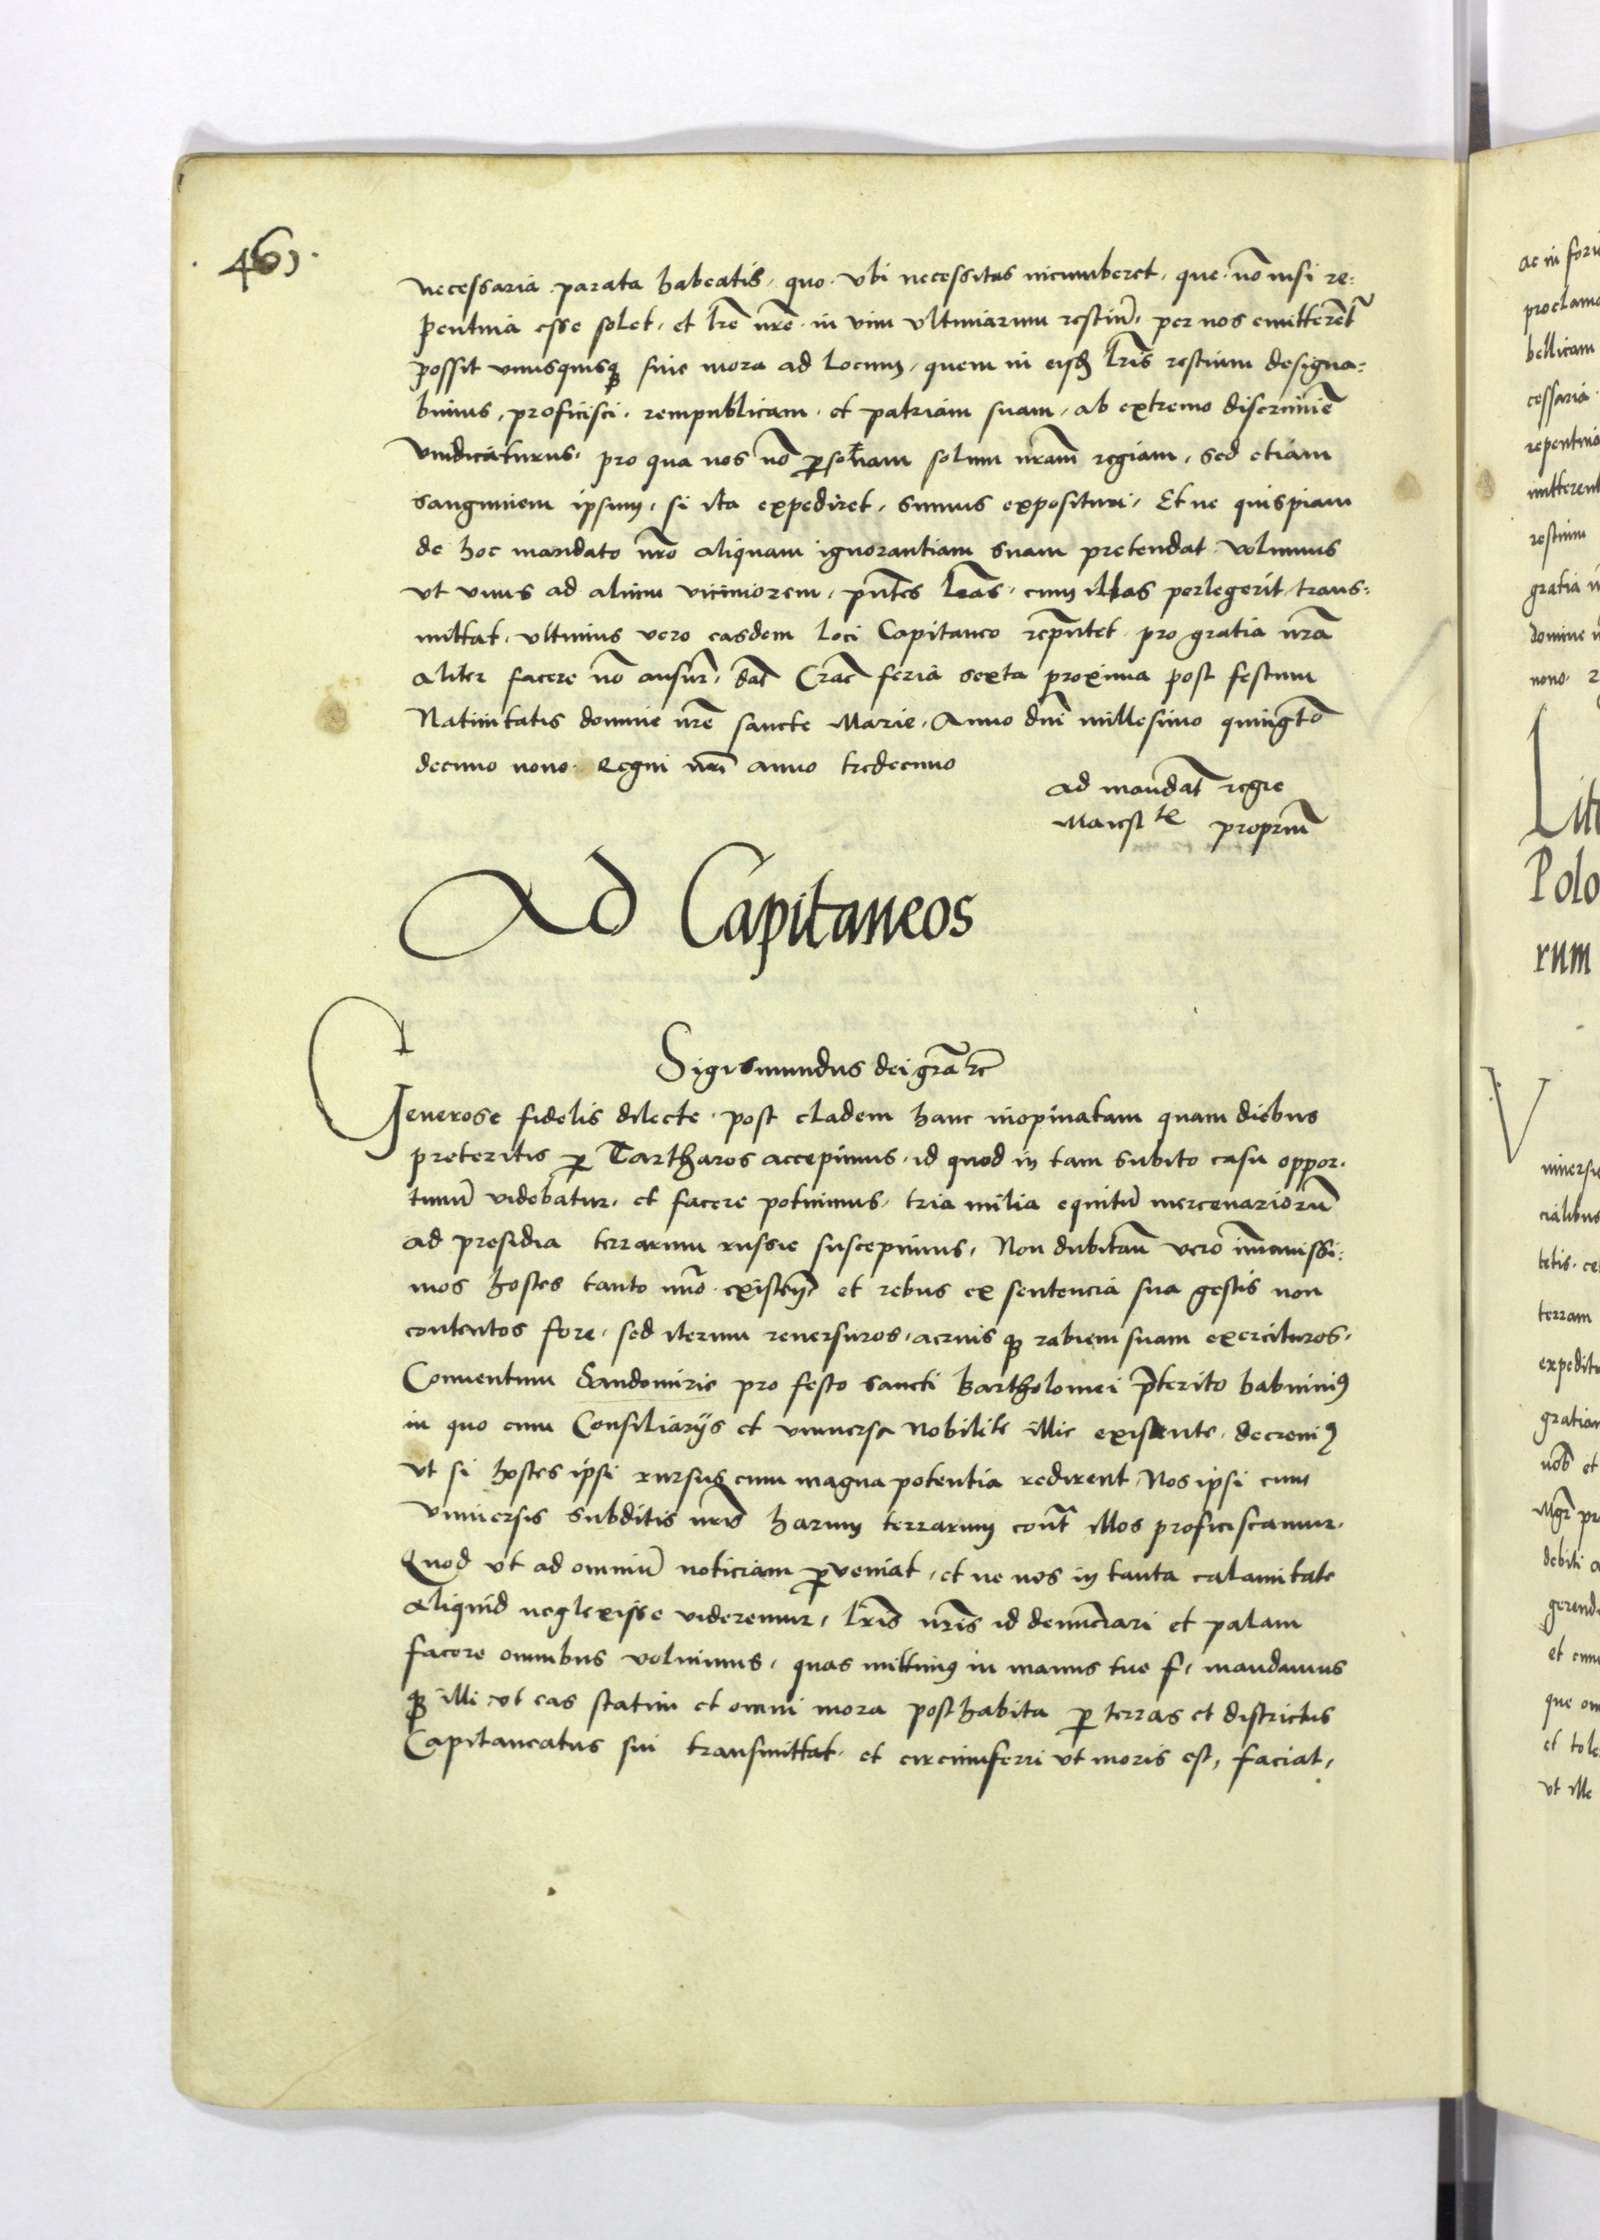 .469.
necessaria parata habeatis, quo ubi necessitas incumberet, que nõ nisi re=
pentina esse solet, et lrẽ nrẽ in vim ultimarum restiũ, per nos emitterẽt
possit unusquisqꝫ sine mora ad Locum, quem in eisdẽ lrĩs restium designa=
bimus, proficisci, rempublicam et patriam suam, ab extremo discrimine
vindicaturus, pro qua nos nõ ꝑsonam solum nrãm regiam, sed etiam
sanguinem ipsum, si ita expediret, sumus exposituri, Et ne quispiam
de hoc mandato nrõ aliquam ignorantiam suam pretendat volumus
ut unus ad alium viciniorem, pñtes lrãs, cum illas perlegerit, trans=
mittat, ultimus vero easdem loci Capitaneo repñtet pro gratia nrã
aliter facere nõ ansur, dat Crac feria sexta proxima post festum
Nativitatis domine nrẽ sancte Marie, Anno dnĩ millesimo quingtõ
decimo nono Regni nrĩ anno tredecimo
ad mandat regie
Maiest te propriũ
Ad Capitaneos
Sigismundus dei grã etc
Generose fidelis dilecte, post cladem hanc inopinatam quam diebus
preteritis ꝑ Tartharos accepimus, id quod in tam subito casu oppor=
tunũ videbatur, et facere potuimus, tria milia equitũ mercenariorũ
ad presidia terrarum russie suscepimus, Non dubitañ vero immanissi=
mos hostes tanto nũo existeñ et rebus ex sentencia sua gestis non
contentos fore, sed iterum reversuros, acriusqꝫ rabiem suam exercituros,
Conventum Sandomirie pro festo sancti Bartholomei p̃terito habuimꝰ
in quo cum Consiliarijs et universa Nobilite illic existente, decrevimꝰ
Ut si hostes ipsi rursus cum magna potentia redirent, Nos ipsi cum
Universis subditis nrĩs harum terrarum cont illos proficiscamur.
Quod ut ad omniũ noticiam ꝑveniat, et ne nos in tanta calamitate
aliquid neglexisse videremur, lrĩs nrĩs id denunctiari et palam
facere omnibus voluimus, quas mittimꝰ in manus tue f, mandamus
qꝫ illi ut eas statim et omni mora posthabita ꝑ terras et districtus
Capitaneatus sui transmittat, et circumferri ut moris est, faciat,